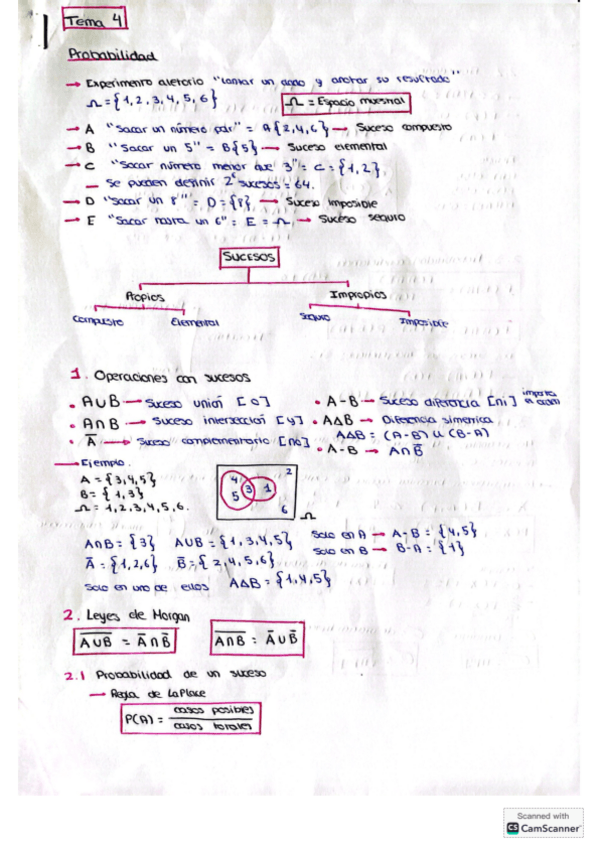 Tema 4
Probabilidad
→ Experimento aleatorio "lanzar un dado y anotar su resultado"
Ω = {1, 2, 3, 4, 5, 6}
Ω = Espacio muestral
→ A "Sacar un número par" = A{2,4,6} → Suceso compuesto
→ B "Sacar un 5" = B{5} → Suceso elemental
→ C "Sacar número menor que 3" = C = {1,2}
— Se pueden definir 2⁶ sucesos = 64.
→ D "Sacar un 8" = D = {8}, → Suceso Imposible
→ E "Sacar hasta un 6" = E = Ω → Suceso seguro
SUCESOS
Propios Impropios
Compuesto Elemental Seguro Imposible
1. Operaciones con sucesos
• A∪B → Suceso unión [o]
• A∩B → Suceso intersección [y]
• A̅ → Suceso complementario [no]
• A-B → Suceso diferencia [ni] importa el orden
• AΔB → Diferencia simetrica
AΔB = (A-B) ∪ (B-A)
• A-B → A∩B̅
→ Ejemplo.
A = {3,4,5}
B = {1,3}
Ω = 1,2,3,4,5,6.
4 5 3 1 2 6 Ω
A∩B = {3} A∪B = {1,3,4,5}
A̅ = {1,2,6} B̅ = {2,4,5,6}
Solo en uno de ellos AΔB = {1,4,5}
Solo en A → A-B = {4,5}
Solo en B → B-A = {1}
2. Leyes de Morgan
A̅∪̅B̅ = A̅∩B̅
A̅∩̅B̅ = A̅∪B̅
2.1 Probabilidad de un suceso
→ Regla de LaPlace
P(A) = casos posibles / casos totales
Scanned with
CS CamScanner